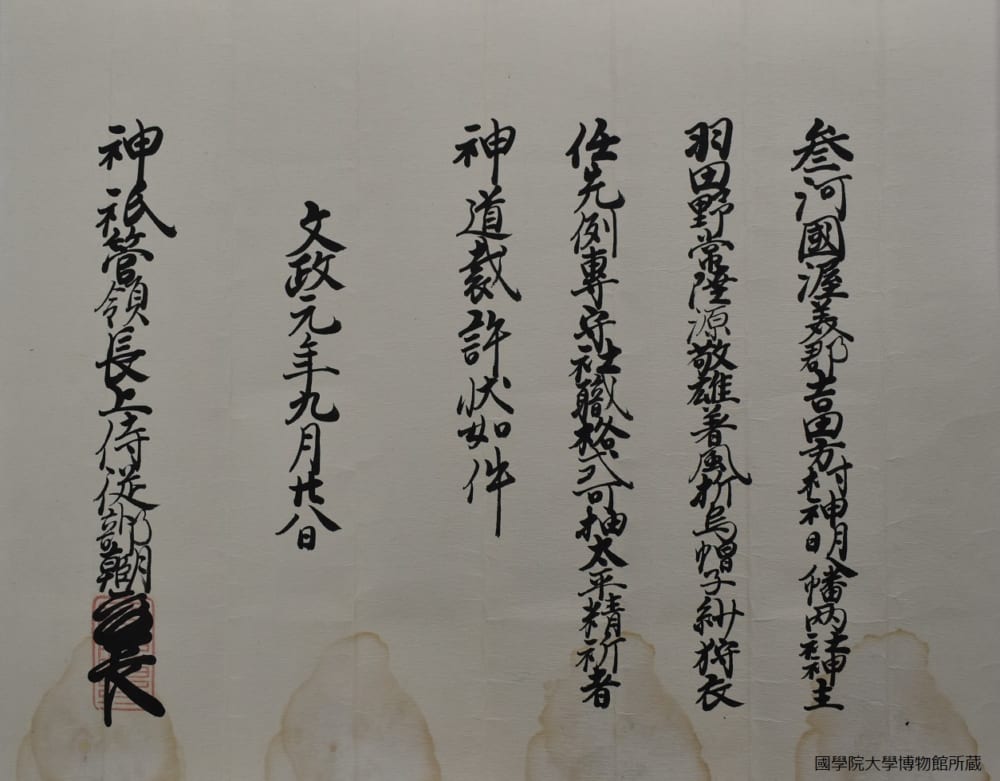 叁河國渥美郡吉田方村神明八幡両社神主
羽田野常陸源敬雄着風折烏帽子紗狩衣
任先例専守社職格式可抽太平精祈者
神道裁許状如件
文政元年九月廿八日
神祇管領長上侍従卜部朝臣
長
國學院大學博物館所蔵